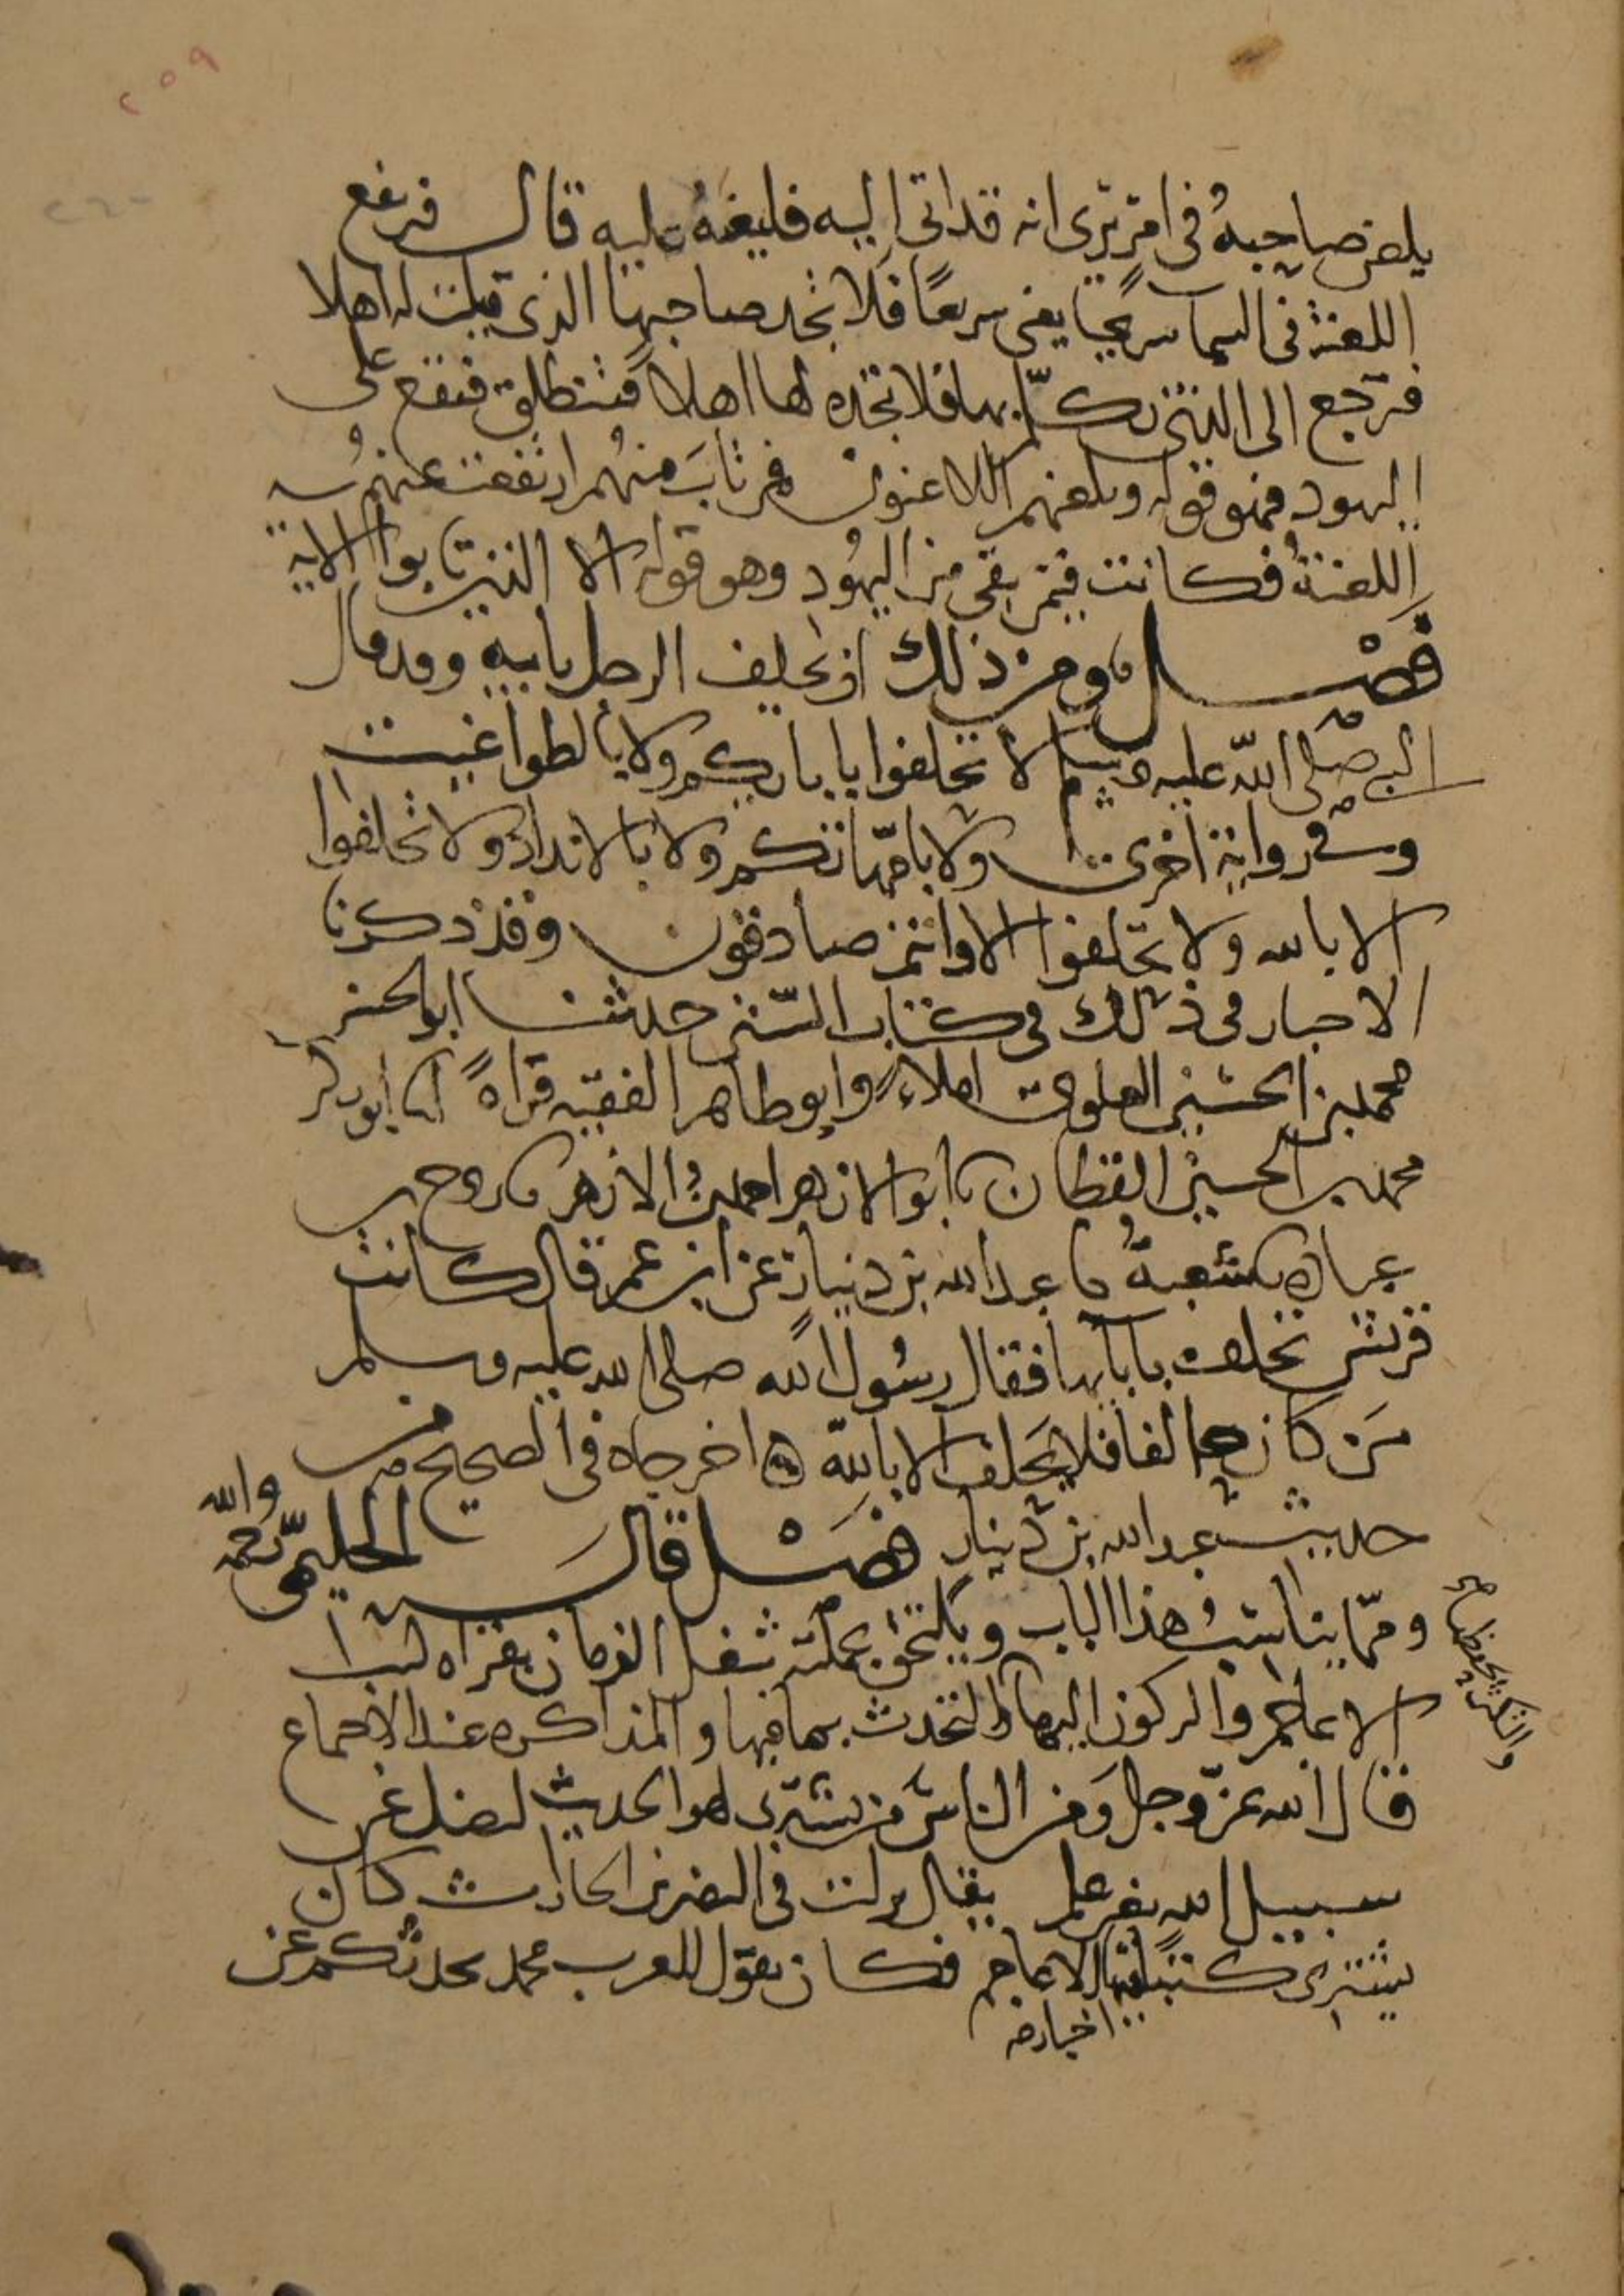 ٢٥٩
٢٦٠
يلعن صاحبه في امر يرى انه قد اتى اليه فليعنه عليه قال فترتفع
اللعنة في السما سريعا يعني سريعا فلا تجد صاحبها الذي قيلت له اهلا
فترجع الى الذي تكلم بها فلا تجده لها اهلا فتنطلق فتقع على
اليهود فهو قوله ويلعنهم اللاعنون فمن تاب منهم ارتفعت عنهم
اللعنة فكانت فيمن بقي من اليهود وهو قوله الا الذين تابوا الاية
فصل ومن ذلك ان يحلف الرجل بابيه وقد قال
النبي صلى الله عليه وسلم لا تحلفوا بابايكم ولا بالطواغيت
وفي رواية اخرى ولا بامهاتكم ولا بالانداد ولا تحلفوا
الا بالله ولا تحلفوا الا وانتم صادقون وقد ذكرنا
الاخبار في ذلك في كتاب السنن حدثنا ابو الحسن
محمد بن الحسين العلوي املاء وابو طاهر الفقيه قراة انا ابو بكر
محمد بن الحسين القطان نا ابو الازهر احمد بن الازهر نا روح بن
عبادة نا شعبة نا عبد الله بن دينار عن ابن عمر قال كانت
قريش تحلف بابايها فقال رسول الله صلى الله عليه وسلم
من كان حالفا فلا يحلف الا بالله اخرجاه في الصحيح من
حديث عبد الله بن دينار فصل قال الحليمي رحمه الله
ومما يناسب هذا الباب ويلتحق بجملته شغل الزمان بقراة كتب
الاعاجم والركون اليها والتكثر بحفظها والتحدث بما فيها والمذاكرة عند الاجتماع
قال الله عز وجل ومن الناس من يشتري لهو الحديث ليضل عن
سبيل الله بغير علم يقال نزلت في النضر بن الحارث كان
يشتري كتبا فيها اخبار الاعاجم فكان يقول للعرب محمد يحدثكم عن